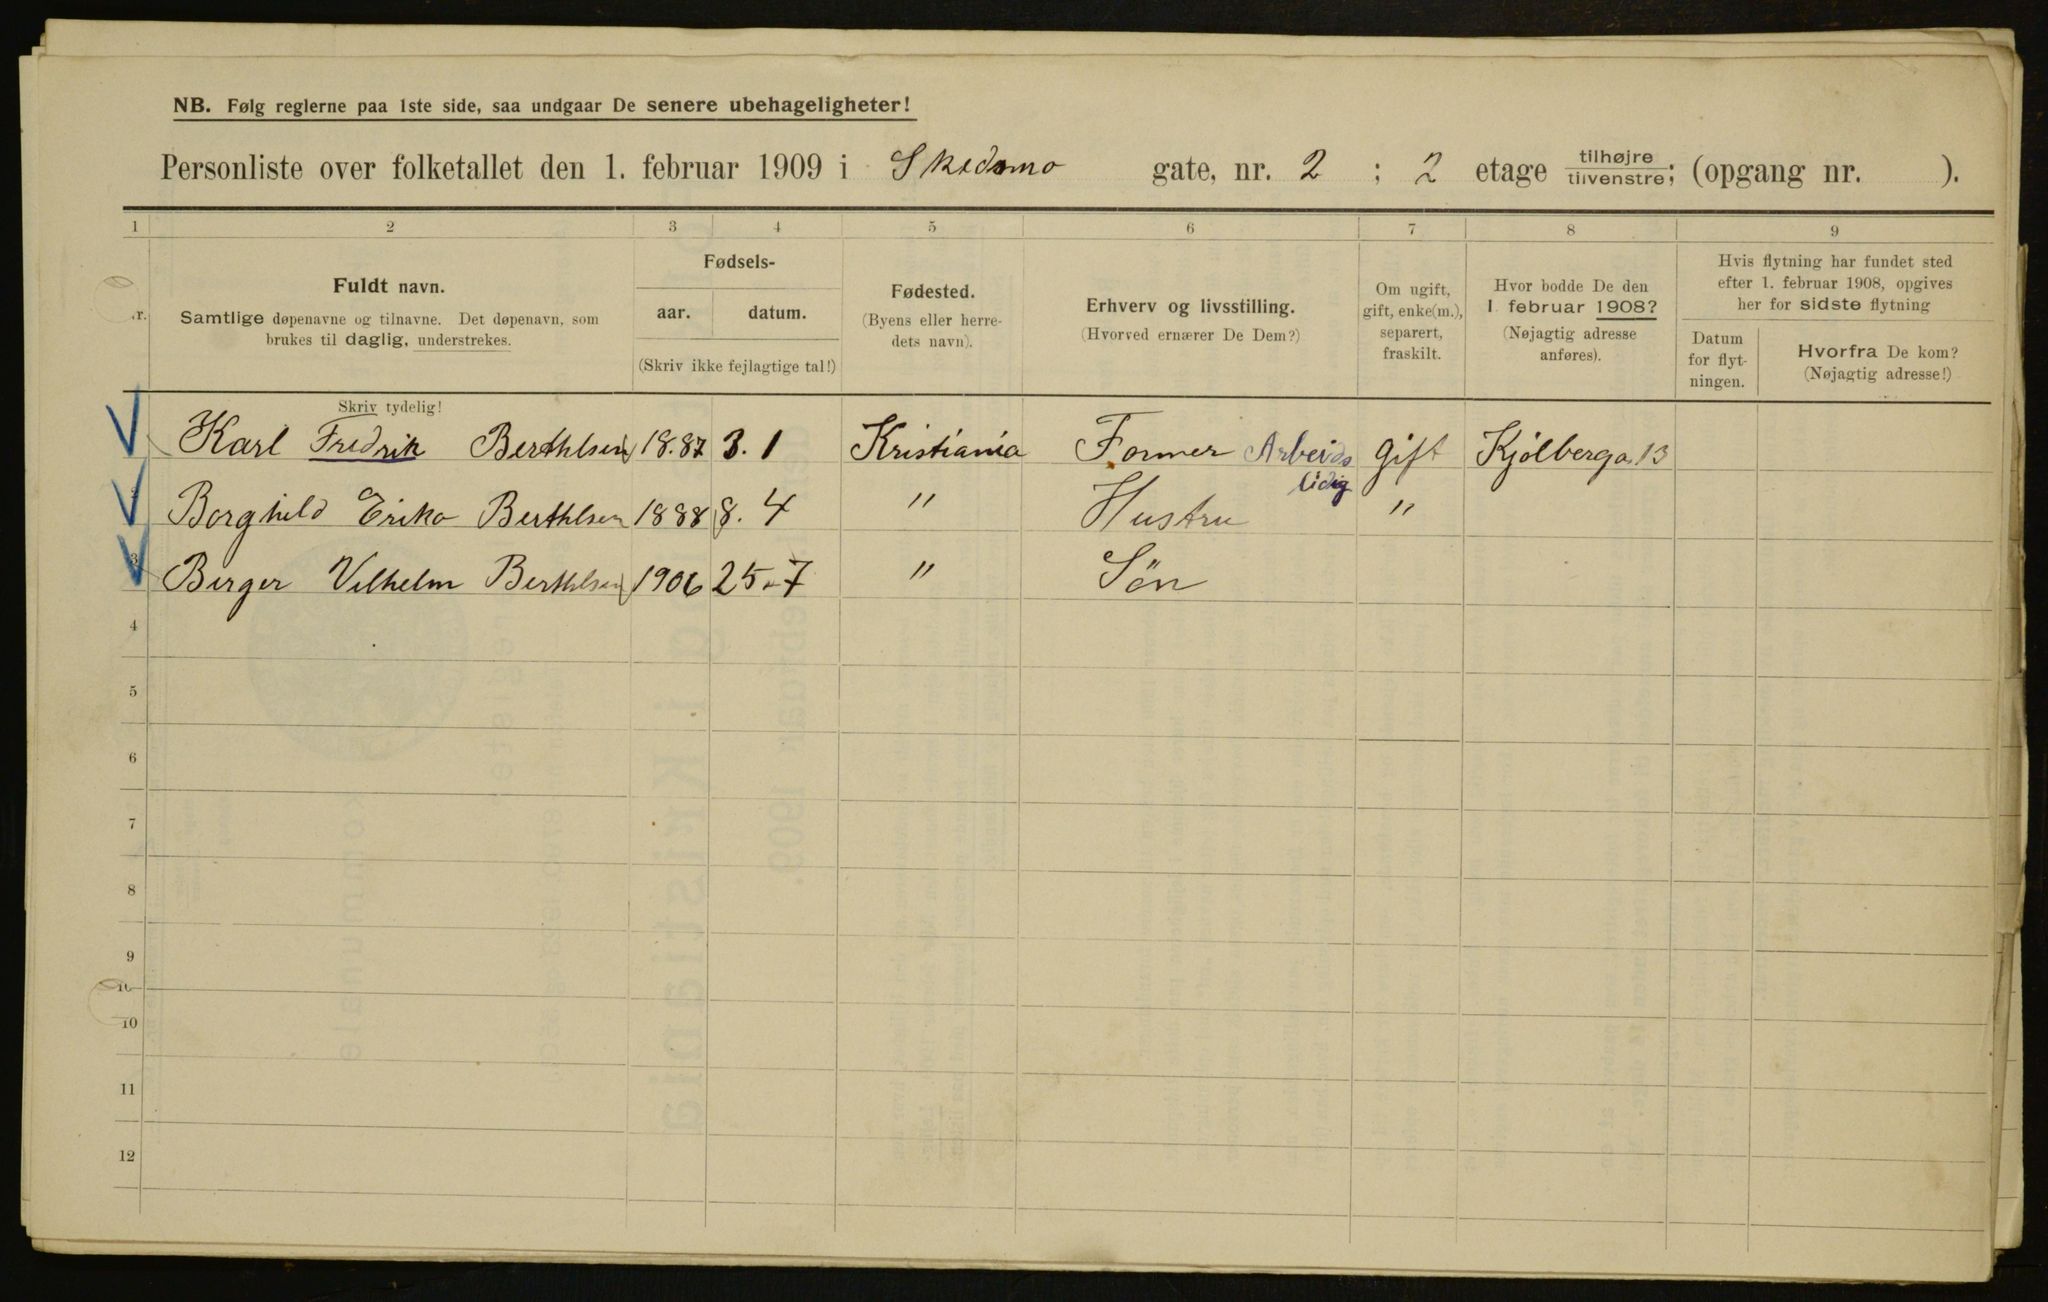 NB. Følg reglerne paa 1ste side, saa undgaar De senere ubehageligheter!
Personliste over folketallet den 1. februar 1909 i Skedsmo gate, nr. 2 ; 2 etage tilhøjre tilvenstre; (opgang nr. ).
1 2 3 4 5 6 7 8 9
Fuldt navn.
Samtlige døpenavne og tilnavne. Det døpenavn, som
brukes til daglig, understrekes.
Skriv tydelig!
Fødsels-
aar. datum.
(Skriv ikke fejlagtige tal!)
Fødested.
(Byens eller herre-
dets navn).
Erhverv og livsstilling.
(Hvorved ernærer De Dem?)
Om ugift,
gift, enke(m.),
separert,
fraskilt.
Hvor bodde De den
1 februar 1908?
(Nøjagtig adresse
anføres).
Hvis flytning har fundet sted
efter 1. februar 1908, opgives
her for sidste flytning
Datum
for flyt-
ningen.
Hvorfra De kom?
(Nøjagtig adresse!)
Karl Fredrik Berthlsen 18.87 3. 1 Kristiania Former Arbeids ledig gift Kjølberga. 13
2 Borghild Erika Berthlsen 1888 8. 4 " Hustru "
3 Birger Vilhelm Berthlsen 1906 25-7 " Søn
4
5
6
7
8
9
10
10
11
12